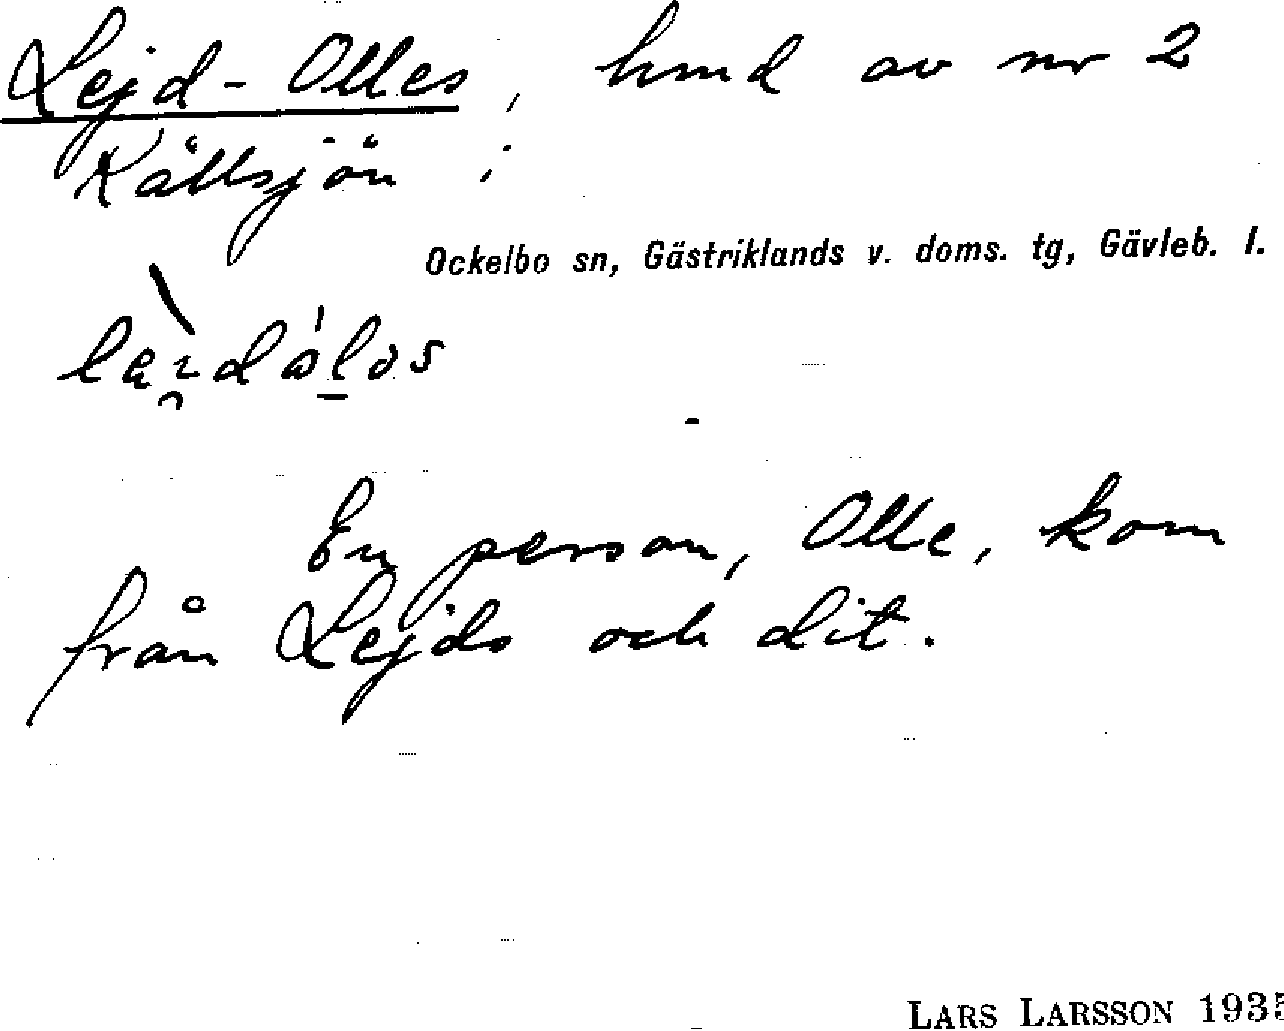 Lejd-Olles, hmd av nr 2
Källsjön i
Ockelbo sn, Gästriklands v. doms. tg, Gävleb. l.
En person, Olle, kom
från Lejds och dit.
LARS LARSSON 1935